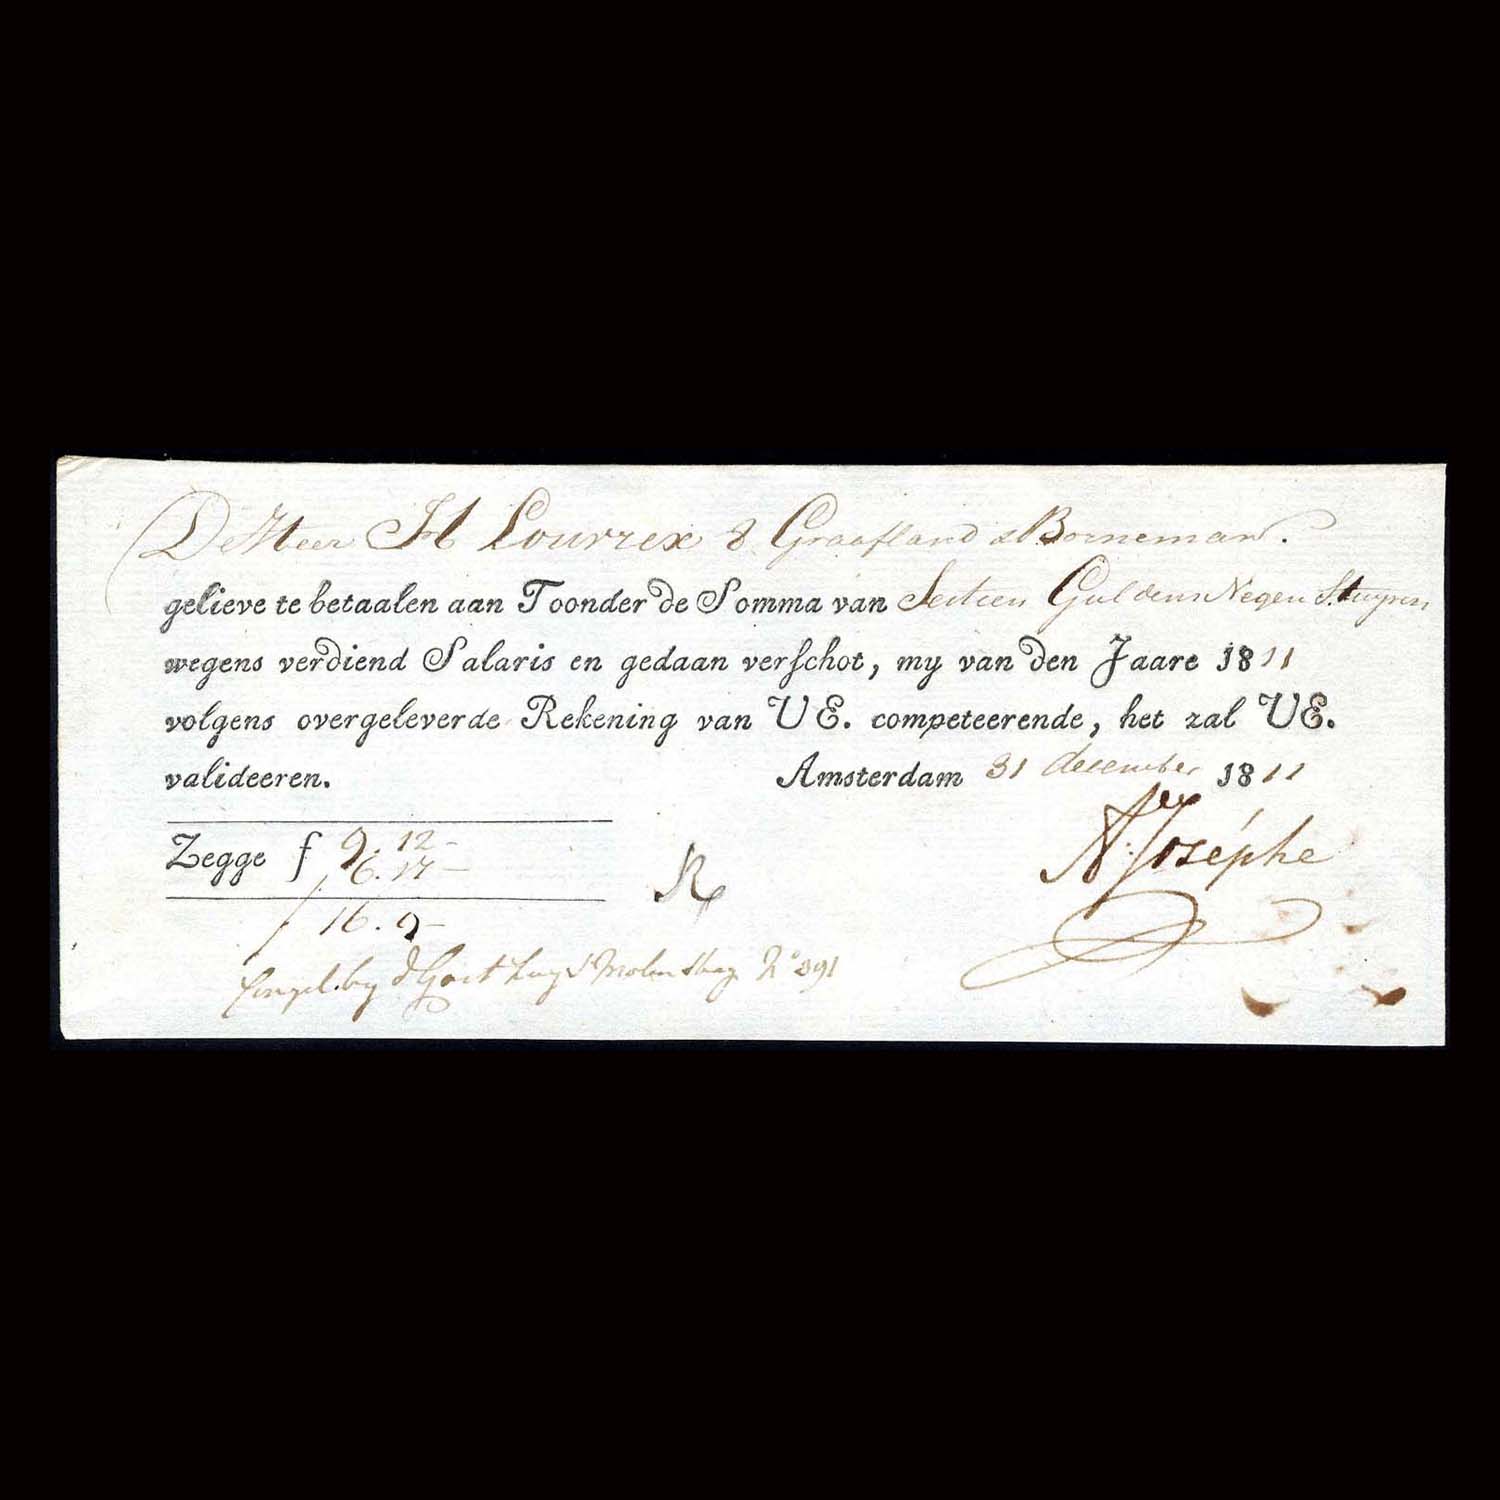 De Heer JH Lourrex & Graafland & Borneman.
gelieve te betaalen aan Toonder de Somma van Sestien Guldens Negen Stuyvers
wegens verdiend Salaris en gedaan verschot, my van den Jaare 1811
volgens overgeleverde Rekening van UE. competeerende, het zal UE.
valideeren. Amsterdam 31 december 1811
Zegge f 9.12-
6.17-
16.9-
N: Joséphe
R
Cingel by d' Molensteeg No 391